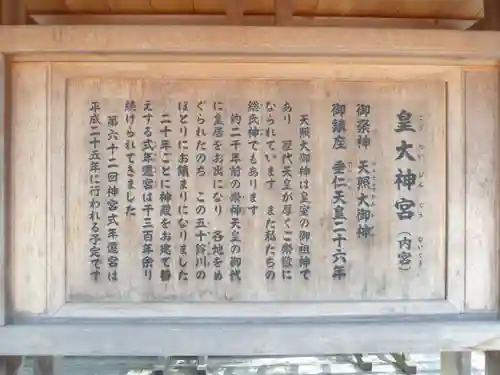 皇大神宮（内宮）
こう たい じん ぐう ないくう
御祭神 天照大御神
御鎮座 垂仁天皇二十六年
天照大御神は皇室の御祖神で
あり 歴代天皇が厚くご崇敬に
なられています また私たちの
総氏神でもあります
約二千年前の崇神天皇の御代
に皇居をお出になり 各地をめ
ぐられたのち この五十鈴川の
ほとりにお鎮まりになりました
二十年ごとに神殿をお建て替
えする式年遷宮は千三百年余り
続けられてきました
第六十二回神宮式年遷宮は
平成二十五年に行われる予定です